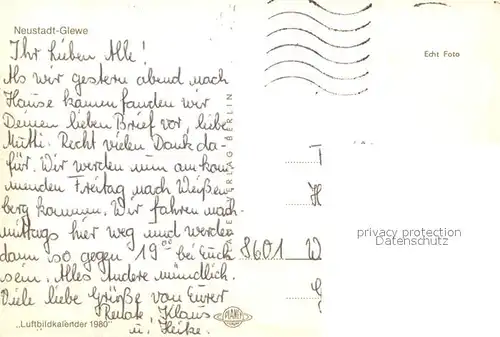 Neustadt-Glewe
Ihr lieben Alle!
Als wir gestern abend nach
Hause kamen fanden wir
Deinen lieben Brief vor, liebe
Mutti. Recht vielen Dank da-
für. Wir werden nun am kom
menden Freitag nach Weißen
berg kommen. Wir fahren nach-
mittags hier weg und werden
dann so gegen 19⁰⁰ bei Euch
sein. Alles Andere mündlich.
Viele liebe Grüße von Eurer
Renate, Klaus
u. Heike.
„Luftbildkalender 1980"
PLANET
VERLAG BERLIN
Echt Foto
T
H
8601 W
privacy protection
Datenschutz